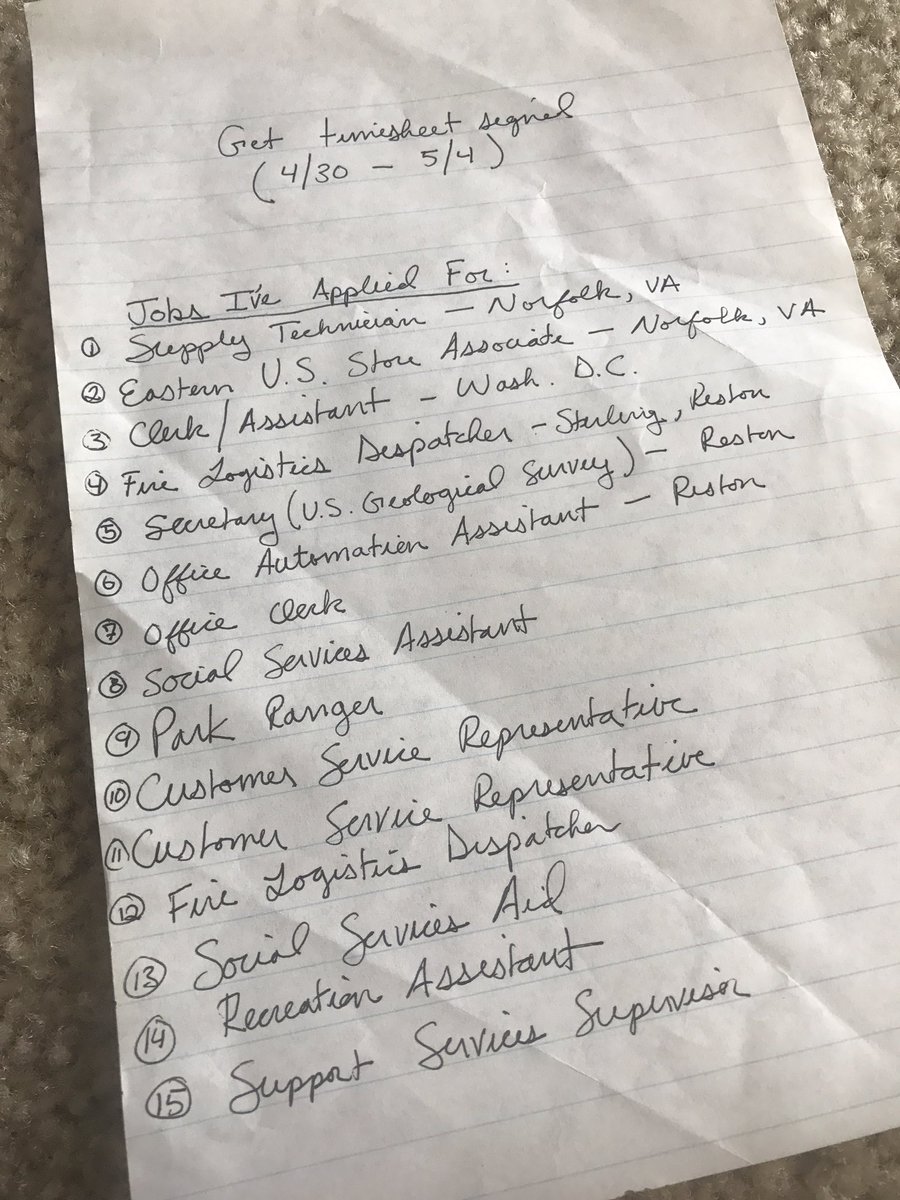 Get timesheet signed
(4/30 - 5/4)
Jobs I've Applied For:
① Supply Technician - Norfolk, VA
② Eastern U.S. Store Associate - Norfolk, VA
③ Clerk/Assistant - Wash. D.C.
④ Fire Logistics Dispatcher - Sterling, Reston
⑤ Secretary (U.S. Geological Survey) - Reston
⑥ Office Automation Assistant - Reston
⑦ Office Clerk
⑧ Social Services Assistant
⑨ Park Ranger
⑩ Customer Service Representative
⑪ Customer Service Representative
⑫ Fire Logistics Dispatcher
⑬ Social Services Aid
⑭ Recreation Assistant
⑮ Support Services Supervisor